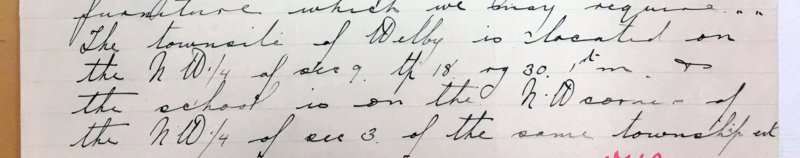 furniture which we may require...
The townsite of Welby is located on
the N W 1/4 of sec 9. tp 18. rg 30. 1st m. &
the school is on the N.W corner of
the N W 1/4 of sec 3. of the same township